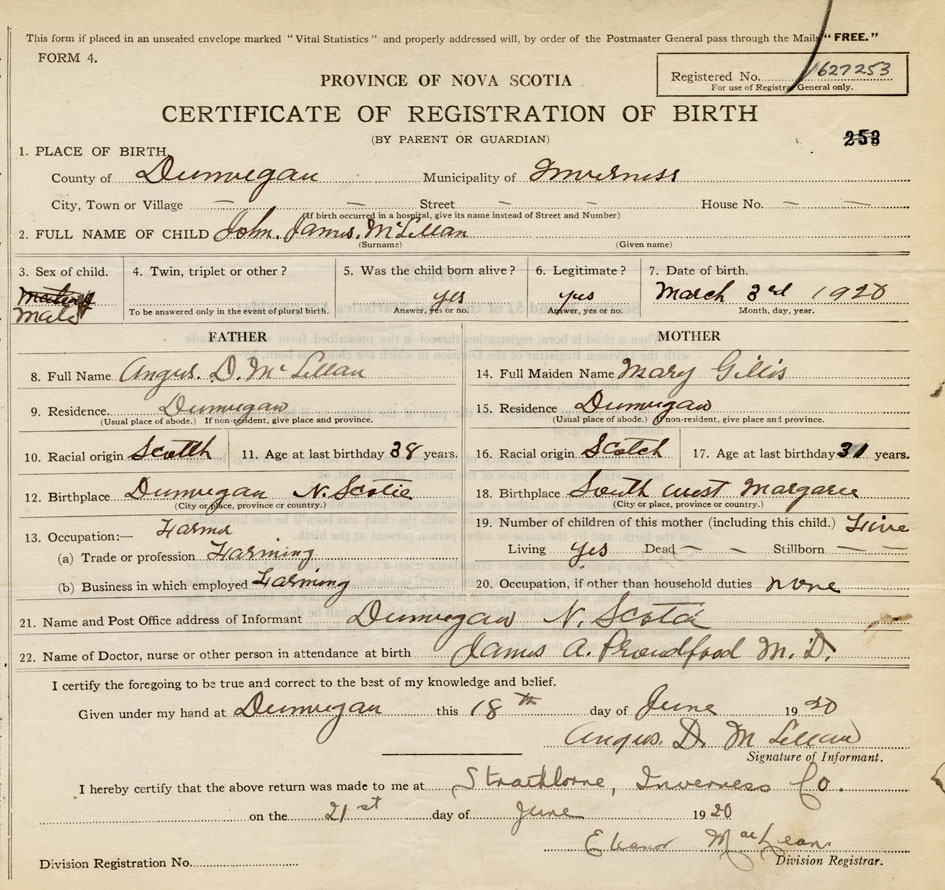 This form if placed in an unsealed envelope marked "Vital Statistics" and properly addressed will, by order of the Postmaster General pass through the Mails "FREE."
FORM 4.
Registered No. 1627253
For use of Registrar General only.
PROVINCE OF NOVA SCOTIA
CERTIFICATE OF REGISTRATION OF BIRTH
(BY PARENT OR GUARDIAN)
253
1. PLACE OF BIRTH
County of Dunvegan Municipality of Inverness
City, Town or Village — — Street — — House No. — —
(If birth occurred in a hospital, give its name instead of Street and Number)
2. FULL NAME OF CHILD John. James. McLellan
(Surname) (Given name)
3. Sex of child. 4. Twin, triplet or other? 5. Was the child born alive? 6. Legitimate? 7. Date of birth.
Male yes yes March 3rd 1920
To be answered only in the event of plural birth. Answer, yes or no. Answer, yes or no. Month, day, year.
FATHER MOTHER
8. Full Name Angus. D. McLellan 14. Full Maiden Name Mary Gillis
9. Residence Dunvegan 15. Residence Dunvegan
(Usual place of abode.) If non-resident, give place and province. (Usual place of abode.) If non-resident, give place and province.
10. Racial origin Scotch 11. Age at last birthday 38 years. 16. Racial origin Scotch 17. Age at last birthday 31 years.
12. Birthplace Dunvegan N. Scotia 18. Birthplace South West Margaree
(City or place, province or country.) (City or place, province or country.)
13. Occupation:— Farmer 19. Number of children of this mother (including this child.) Five
(a) Trade or profession Farming Living Yes Dead — — Stillborn — —
(b) Business in which employed Farming 20. Occupation, if other than household duties none
21. Name and Post Office address of Informant Dunvegan N. Scotia
22. Name of Doctor, nurse or other person in attendance at birth James A. Proudfood M.D.
I certify the foregoing to be true and correct to the best of my knowledge and belief.
Given under my hand at Dunvegan this 18th day of June 1920
Angus. D. McLellan
Signature of Informant.
I hereby certify that the above return was made to me at Strathlorne, Inverness Co.
on the 21st day of June 1920
Eleanor MacLean
Division Registration No. Division Registrar.